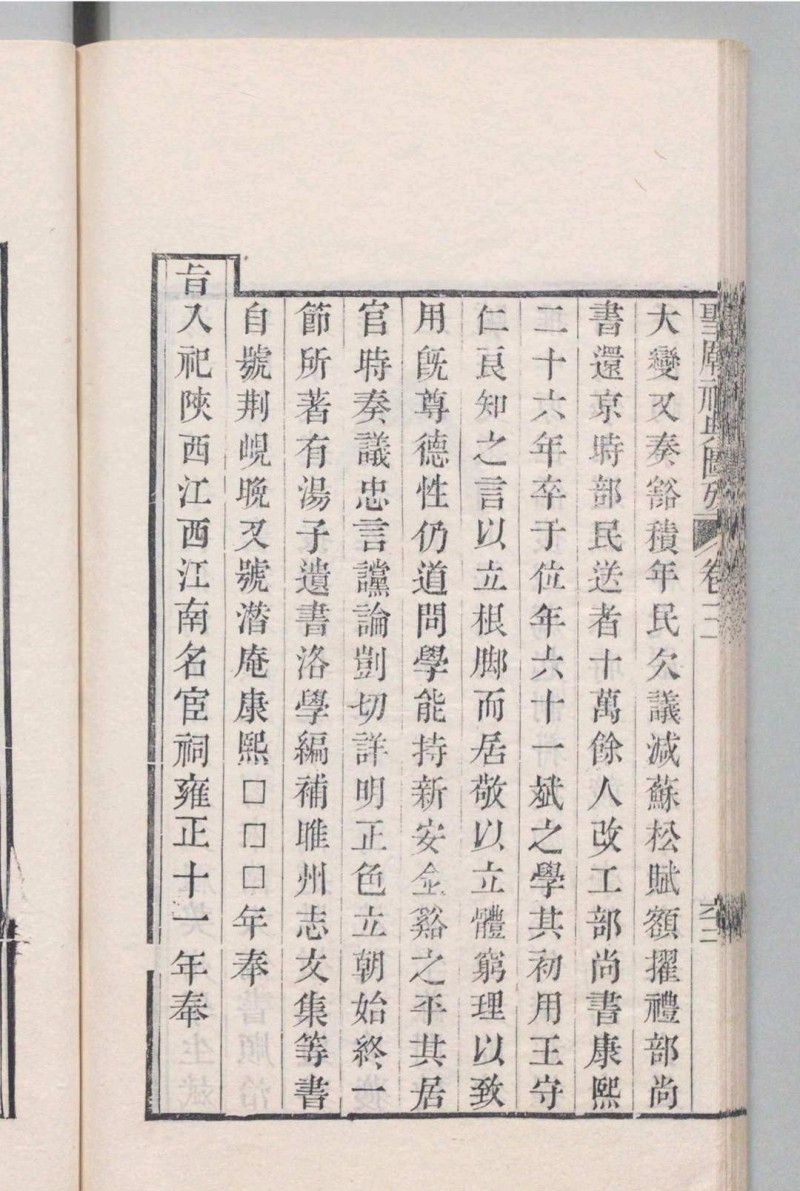 聖廟祀典圖考 卷三
大變又奏豁積年民欠議減蘇松賦額擢禮部尚
書還京時部民送者十萬餘人改工部尚書康熙
二十六年卒于位年六十一斌之學其初用王守
仁良知之言以立根脚而居敬以立體窮理以致
用旣尊德性仍道問學能持新安金谿之平其居
官時奏議忠言讜論剴切詳明正色立朝始終一
節所著有湯子遺書洛學編補睢州志文集等書
自號荆峴晚又號潛庵康熙□□□年奉
旨入祀陝西江西江南名宦祠雍正十一年奉